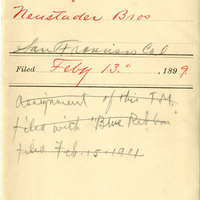 Neustader Bros
San Francisco Cal
Filed Feby 13th, 1899.
Assignment of this T.M.
filed with "Blue Ribbon"
filed Feb. 15-1921